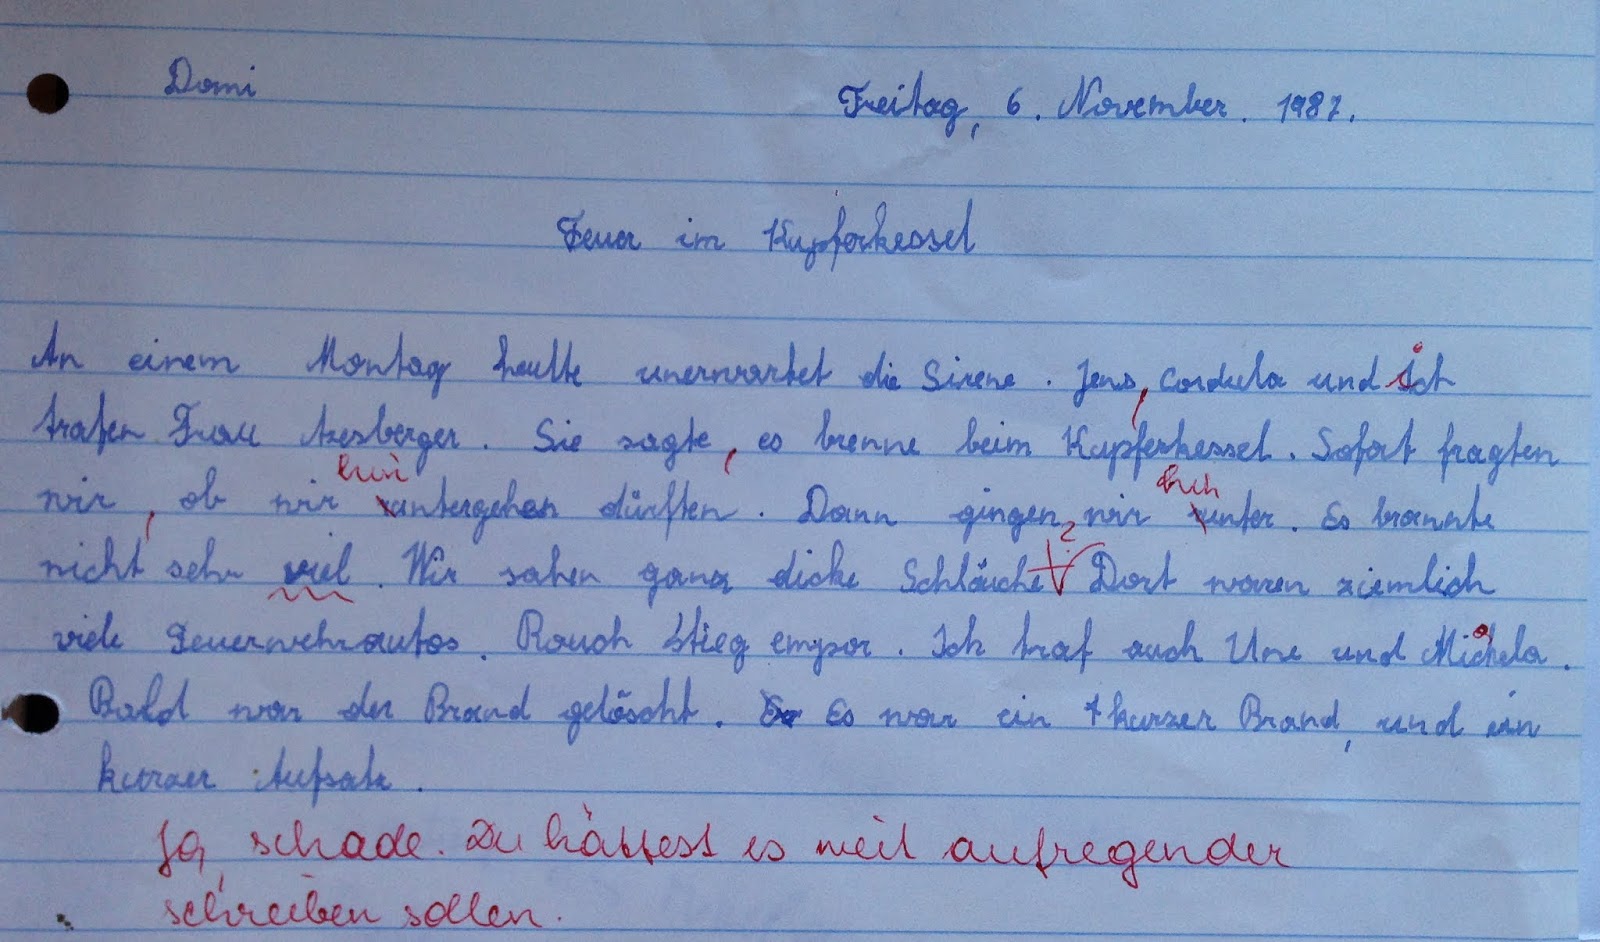 Domi
Freitag, 6. November. 1987.
Feuer im Kupferkessel
An einem Montag heulte unerwartet die Sirene. Jens, Cordula und ich
trafen Frau. Sie sagte, es brenne beim Kupferkessel. Sofort fragten
wir, ob wir hinuntergehen dürften. Dann gingen wir hinunter. Es brannte
nicht sehr viel. Wir sahen ganz dicke Schläuche. Dort waren ziemlich
viele Feuerwehrautos. Rauch stieg empor. Ich traf auch Une und Michela.
Bald war der Brand gelöscht. Es war ein kurzer Brand, und ein
kurzer Aufsatz.
Ja, schade. Du hättest es weit aufregender
schreiben sollen.